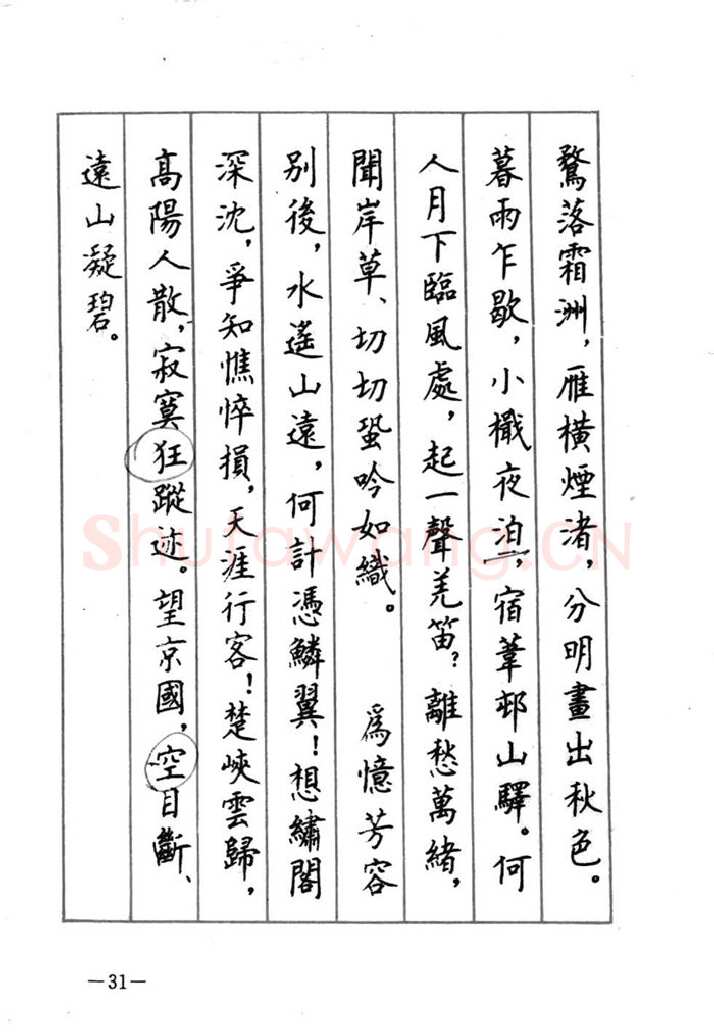 鶩落霜洲，雁橫煙渚，分明畫出秋色。
暮雨乍歇，小檝夜泊，宿葦邨山驛。何
人月下臨風處，起一聲羌笛？離愁萬緒，
聞岸草、切切蛩吟如織。　　爲憶芳容
別後，水遙山遠，何計憑鱗翼！想繡閣
深沈，爭知憔悴損，天涯行客！楚峽雲歸，
高陽人散，寂寞狂蹤迹。望京國，空目斷、
遠山凝碧。
Shufawang.CN
—31—